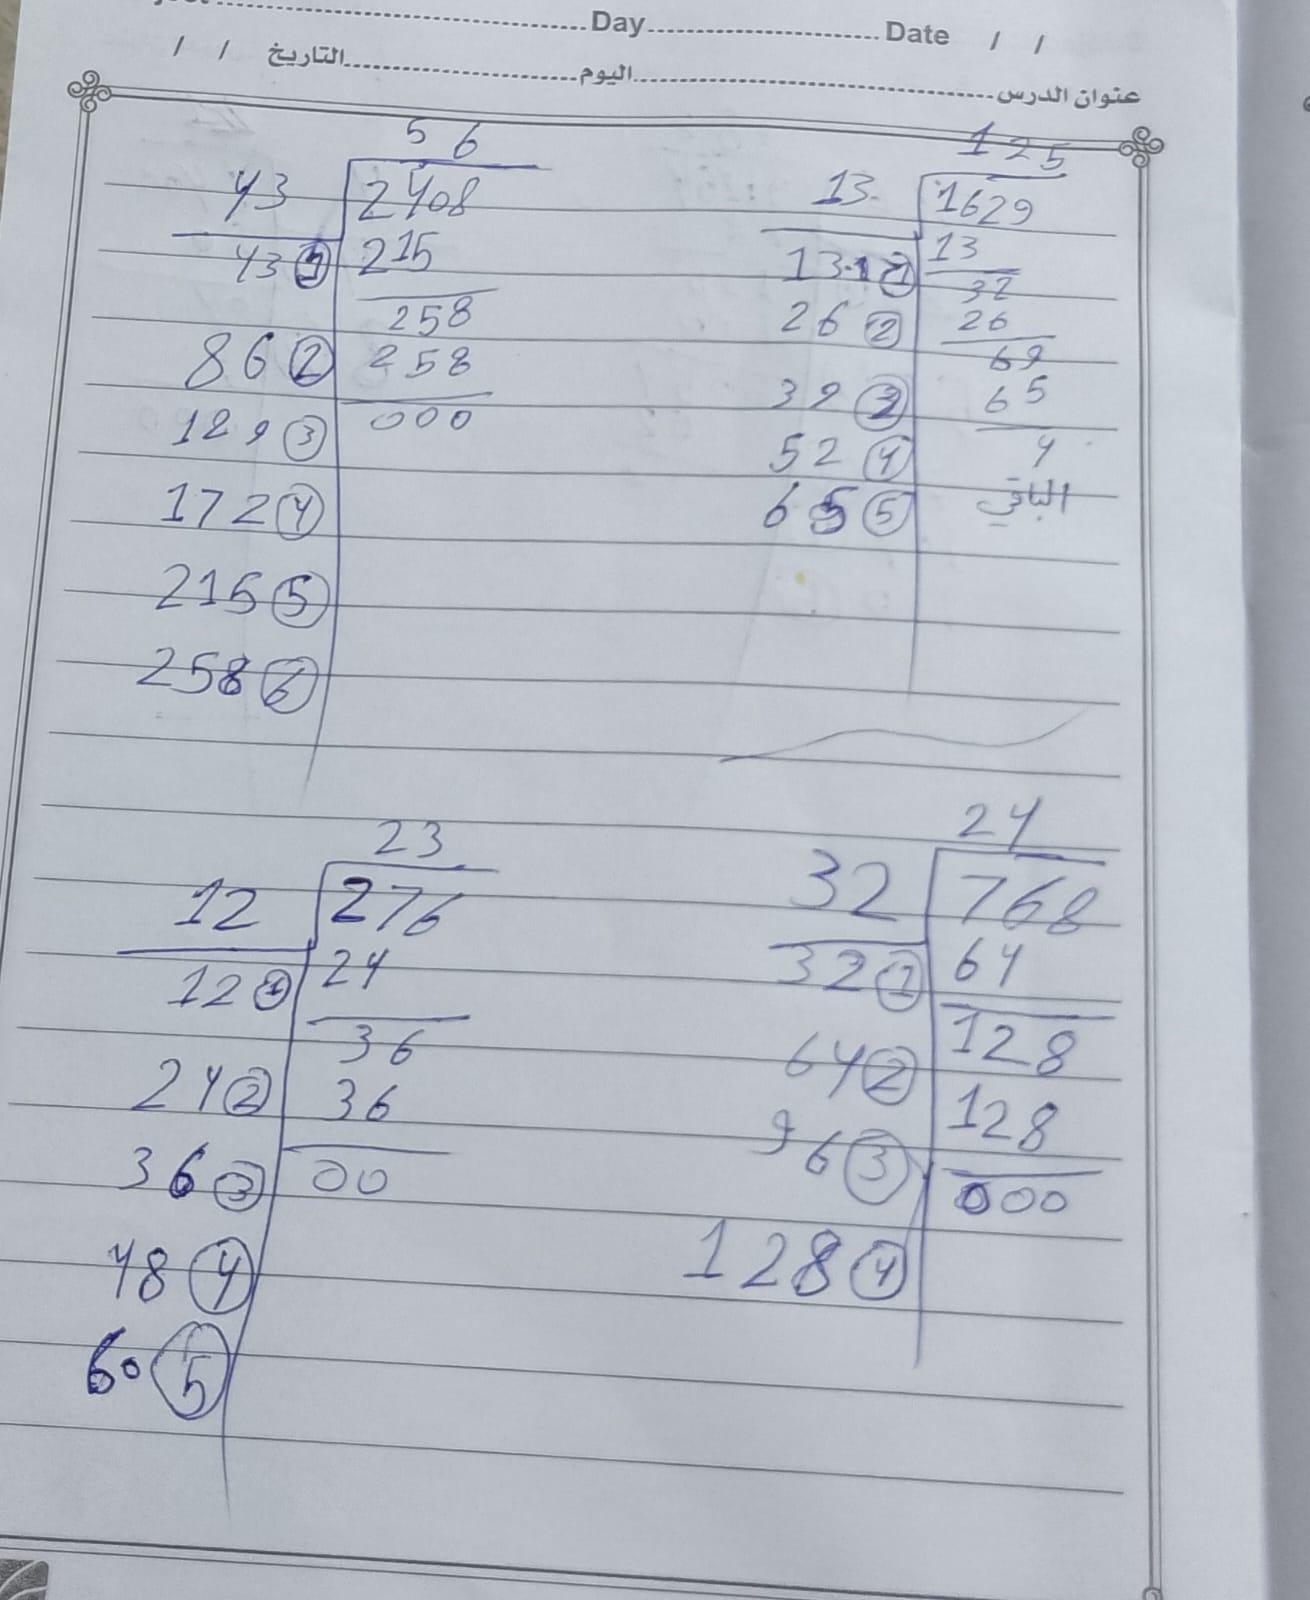 Day Date / /
عنوان الدرس اليوم التاريخ / /
56
43 2408
43 1 215
258
86 2 258
129 3 000
172 4
215 5
258 6
125
13 1629
13 1 13
32
26 2 26
69
39 3 65
52 4 4
65 5 الباقي
23
12 276
12 1 24
36
24 2 36
36 3 00
48 4
60 5
24
32 768
32 1 64
128
64 2 128
96 3 000
128 4